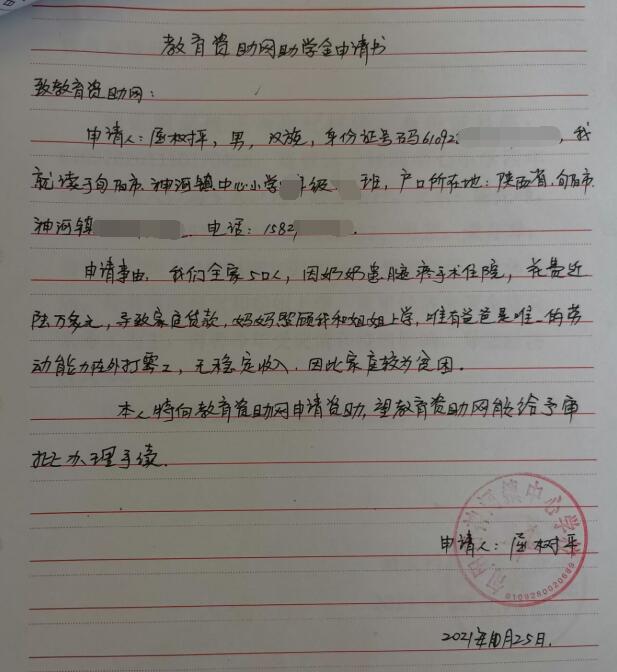 教育资助网助学金申请书
致教育资助网：
申请人：屈树平，男，汉族，身份证号码61092 我
就读于旬阳市神河镇中心小学 年级 班，户口所在地：陕西省，旬阳市
神河镇 电话：1582 .
申请事由：我们全家5口人，因奶奶患脑瘤手术住院，花费近
陆万多元，导致家庭贷款，妈妈照顾我和姐姐上学，唯有爸爸是唯一的劳
动能力在外打零工，无稳定收入，因此家庭较为贫困。
本人特向教育资助网申请资助，望教育资助网能给予审
批办理手续.
神河镇中心学校
申请人：屈树平
6109280020689
2021年10月25日.